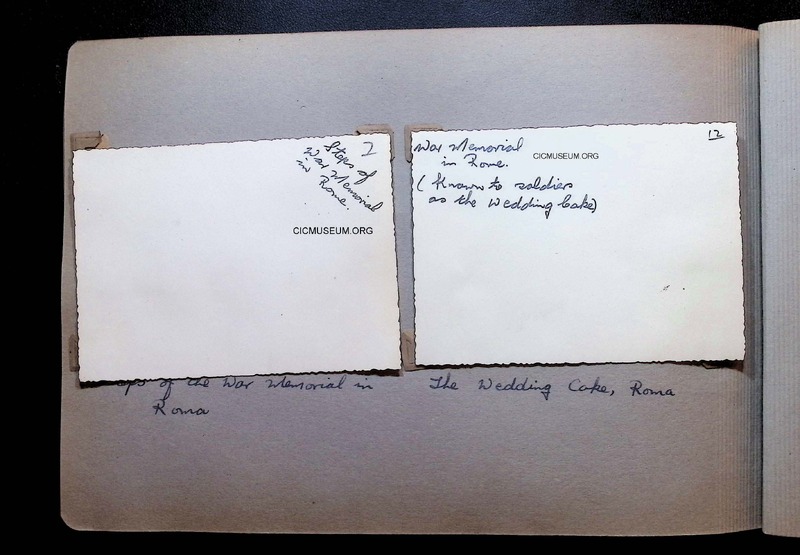 Steps of
War Memorial
in Rome.
CICMUSEUM.ORG
12
War Memorial
in Rome.
CICMUSEUM.ORG
(Known to soldiers
as the Wedding Cake)
of the War Memorial in
Roma
The Wedding Cake, Roma